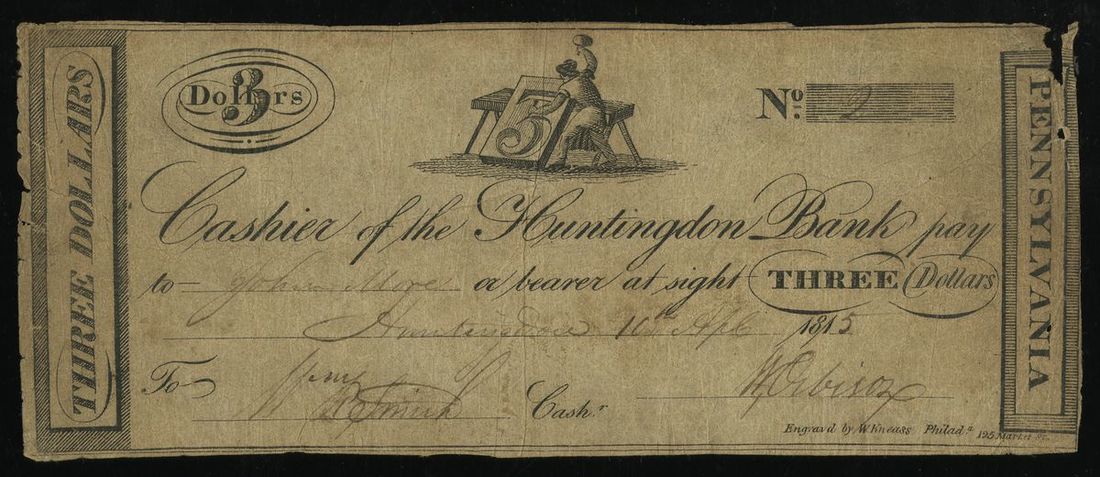 THREE DOLLARS
3 Dollars
3
No. 2
Cashier of the Huntingdon Bank pay
to John or bearer at sight THREE Dollars
Huntingdon 10th Apl 1815
To Wm
Cash.r W Orbison
Engrav'd by W Kneass Philad.a 195 Market St.
PENNSYLVANIA